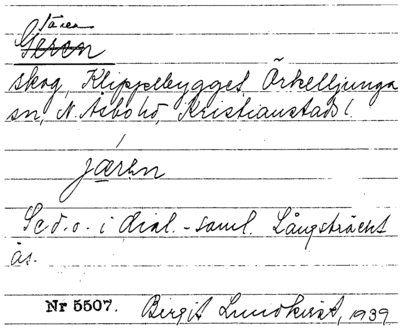 Jären
Geren
skog, Klippebygget, Örkelljunga
sn, N. Åsbo hd, Kristianstads l.
jæren
Se d. o. i dial.-saml. Långsträckt
ås.
Nr 5507. Birgit Lundkvist, 1939